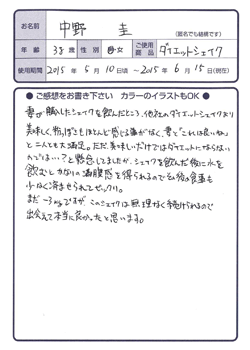 お名前 中野 圭 (匿名でも結構です)
年齢 38歳 性別 男・女 ご使用商品 ダイエットシェイク
使用期間 2015年 5月 10日頃 ～2015年 6月 15日(現在)
●ご感想をお書き下さい カラーのイラストもOK●
妻が購入したシェイクを飲んだところ、他社のダイエットシェイクより
美味しく、粉っぽさもほとんど感じる事がなく、妻と「これは良いね」
と二人とも大満足。ただ、美味しいだけではダイエットにならない
のでは…？と懸念しましたが、シェイクを飲んだ後に水を
飲むとかなりの満腹感を得られるのでその後の食事も
少なく済ませられてビックリ。
まだ－3kgですが、このシェイクは無理なく続けられるので
出会えて本当に良かったと思います。